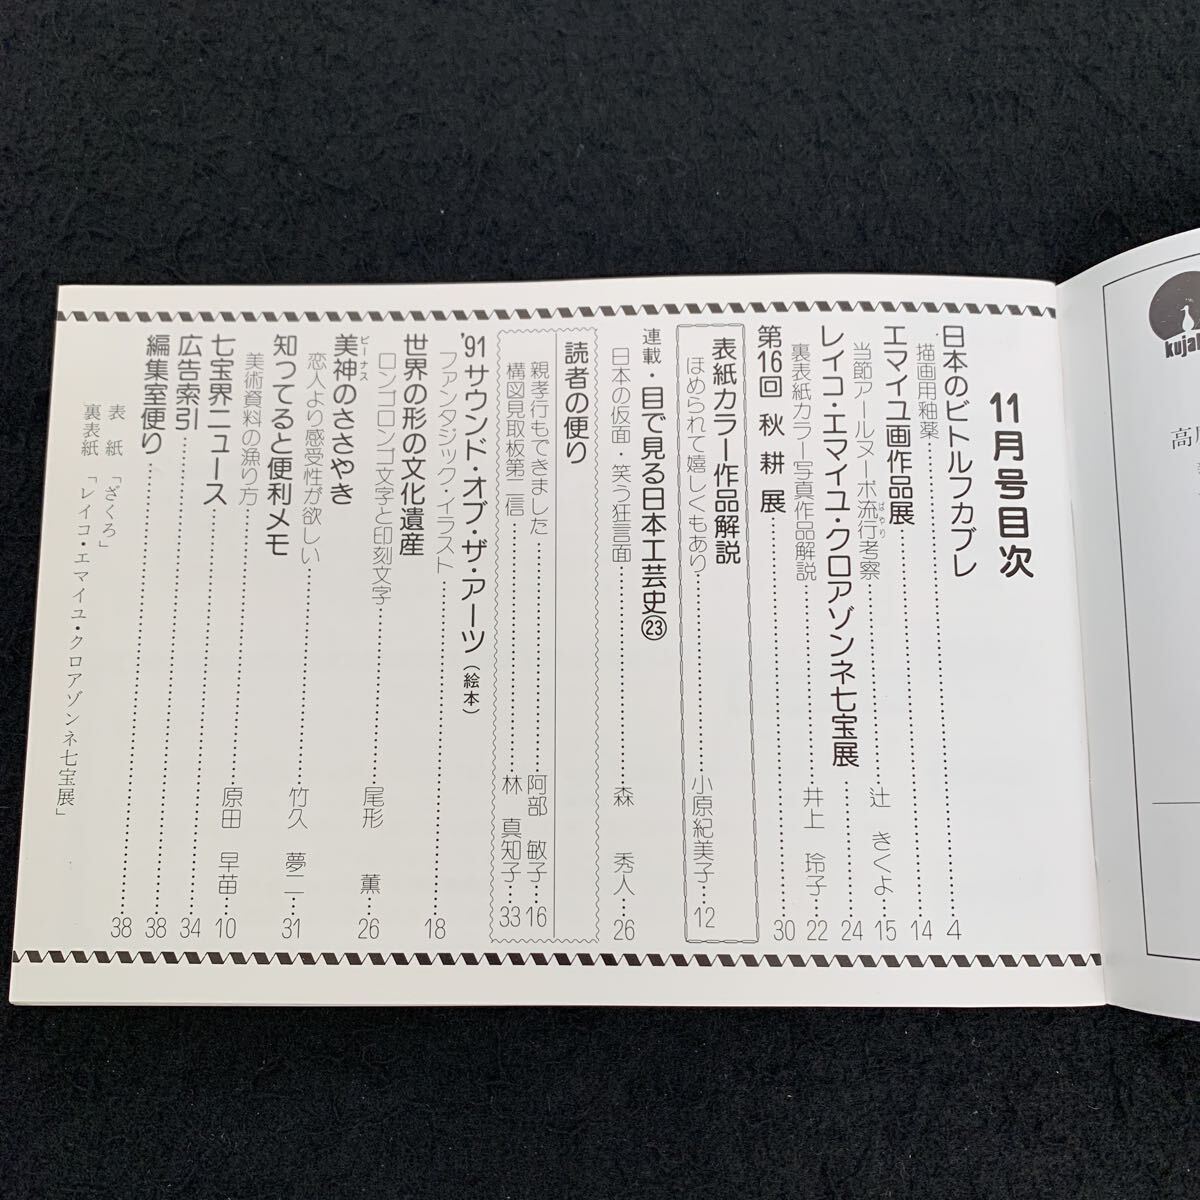 11月号目次
日本のビトルフカブレ……4
描画用釉薬……14
エマイユ画作品展
当節アールヌーボ流行考察……辻 きくよ…15
はやり
レイコ・エマイユ・クロアゾンネ七宝展……24
裏表紙カラー写真作品解説……井上 玲子…22
第16回 秋耕展……30
表紙カラー作品解説
ほめられて嬉しくもあり……小原紀美子…12
連載・目で見る日本工芸史㉓
日本の仮面・笑う狂言面……森 秀人…26
読者の便り
親孝行もできました……阿部 敏子…16
構図見取板第二信……林 真知子…33
'91サウンド・オブ・ザ・アーツ(絵本)
ファンタジック・イラスト……18
世界の形の文化遺産
ロンゴロンゴ文字と印刻文字……尾形 薫 26
美神のささやき
ビーナス
恋人より感受性が欲しい……竹久 夢二…31
知ってると便利メモ
美術資料の漁り方……原田 早苗…10
七宝界ニュース……34
広告索引……38
編集室便り……38
表 紙 「ざくろ」
裏表紙 「レイコ・エマイユ・クロアゾンネ七宝展」